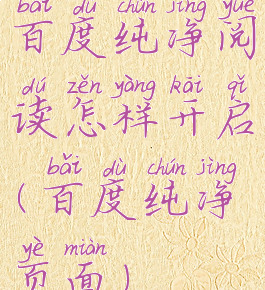 bǎi dù chún jìng yuè
百度纯净阅
dú zěn yàng kāi qǐ
读怎样开启
bǎi dù chún jìng
(百度纯净
yè miàn
页面)